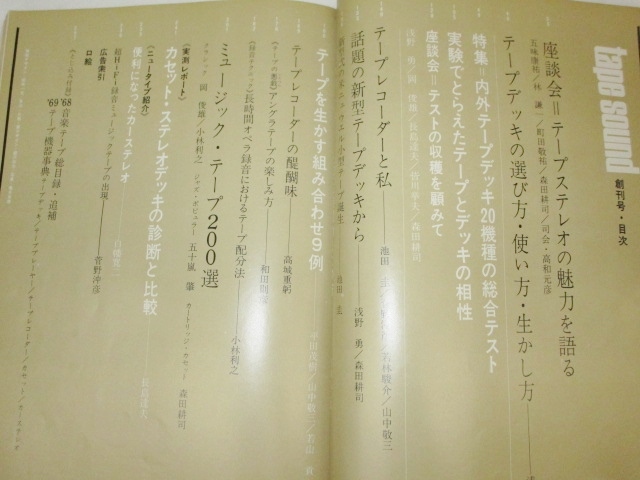 tape sound
創刊号・目次
座談会=テープステレオの魅力を語る
五味康祐／林 謙一／町田敬祐／森田耕司／司会・高和元彦
テープデッキの選び方・使い方・生かし方
特集=内外テープデッキ20機種の総合テスト
実験でとらえたテープとデッキの相性
座談会=テストの収穫を顧みて
浅野 勇／岡 俊雄／長島達夫／菅野沖彦／森田耕司
テープレコーダーと私
池田 圭／若林駿介／山中敬三
話題の新型テープデッキから
浅野 勇／森田耕司
池田 圭
テープを生かす組み合わせ9例
山中敬三／若山 貢
テープレコーダーの醍醐味
高城重躬
アングラテープの楽しみ方
和田則彦
長時間オペラ録音におけるテープ配分法
小林利之
ミュージック・テープ200選
クラシック 岡 俊雄／小林利之 ジャズ・ポピュラー 五十嵐 肇 カートリッジ・カセット 森田耕司
《実測レポート》
カセット・ステレオデッキの診断と比較
長島達夫
《ニュータイプ紹介》
便利になったカーステレオ
超Hi-Fi録音ミュージックテープの出現
菅野沖彦
広告索引
口絵
'68音楽テープ総目録・追補
'69テープ機器事典
テープデッキ／テープレコーダー／カセット／カーステレオ